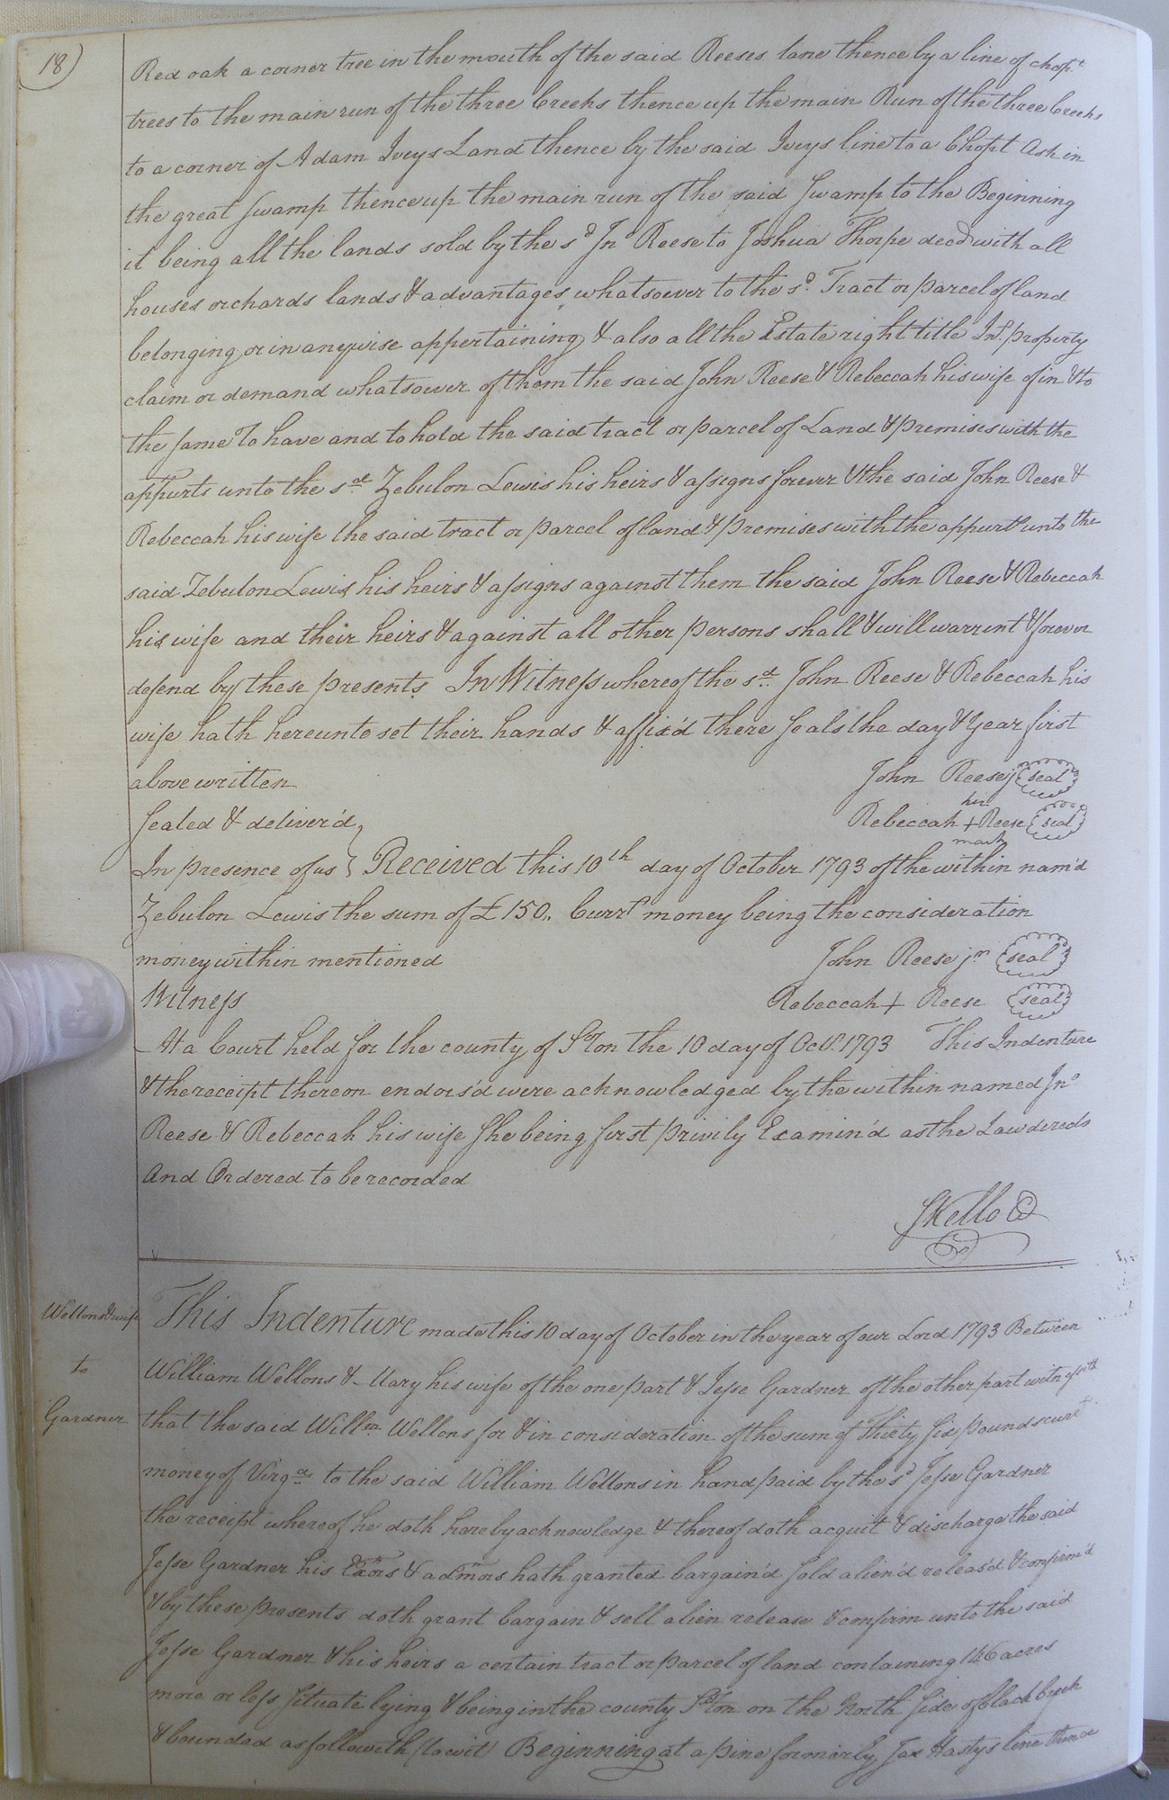 18)
Red oak a corner tree in the mouth of the said Reeses lane thence by a line of chopt
trees to the main run of the three Creeks thence up the main Run of the three Creeks
to a corner of Adam Iveys Land thence by the said Iveys line to a Chopt Ash in
the great Swamp thence up the main run of the said Swamp to the Beginning
it being all the lands sold by the sd Jno Reese to Joshua Thorpe decd with all
houses orchards lands & advantages whatsoever to the sd. Tract or parcel of land
belonging or in anywise appertaining & also all the Estate right title Int. property
claim or demand whatsower of them the said John Reese & Rebeccah his wife of in & to
the same To have and to hold the said tract or parcel of Land & premises with the
appurts unto the sd Zebulon Lewis his heirs & assigns forever & the said John Reese &
Rebeccah his wife the said tract or parcel of land & premises with the appurts unto the
said Zebulon Lewis his heirs & assigns against them the said John Reese & Rebeccah
his wife and their heirs & against all other persons shall & will warrent & forever
defend by these presents In Witness whereof the sd. John Reese & Rebeccah his
wife hath hereunto set their hands & affixd there Seals the day & year first
above written John Reese j (seal)
Sealed & deliver'd Rebeccah her + mark Reese (seal)
In presence of us } Received this 10th day of October 1793 of the within nam'd
Zebulon Lewis the sum of £150,, Currt money being the consideration
money within mentioned John Reese jr (seal)
Witness Rebeccah + Reese (seal)
At a Court held for the county of S°ton the 10 day of Oct. 1793 This Indenture
& the receipt thereon endors'd were acknowledged by the within named Jno
Reese & Rebeccah his wife She being first privily Examin'd as the Law direds
And Ordered to be recorded
SKello C
Wellons & wife
to
Gardner
This Indenture made this 10 day of October in the year of our Lord 1793 Between
William Wellons & Mary his wife of the one part & Jesse Gardner of the other part witnesseth
that the said Willm Wellons for & in consideration of the sum of Thirty Six pounds curt
money of Virga. to the said William Wellons in hand paid by the sd Jesse Gardner
the receipt whereof he doth hereby acknowledge & thereof doth acquit & discharge the said
Jesse Gardner his Exors & admors hath granted bargain'd sold alien'd releas'd & confirm'd
& by these presents doth grant bargain & sell alien release & confirm unto the said
Jesse Gardner & his heirs a certain tract or parcel of land containing 146 acres
more or less Situate lying & being in the county S°ton on the North Side of black Creek
& bounded as followith (to wit) Beginning at a pine formerly Jas Hastys line thence